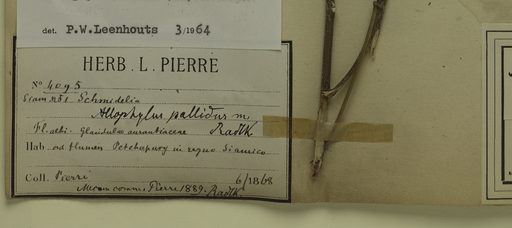 det. P.W.Leenhouts 3/1964
HERB. L. PIERRE
No 4095
Siam Schmidelia
Allophylus pallidus m.
Fl. albi. Glandulae aurantiacae Radlk
Hab. ad flumen Petchapury in regno Siamico
Coll. Pierre 6/1868
Mecum comm. Pierre 1889. Radlk.